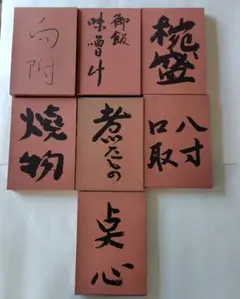 向附
御飯
味噌汁
椀盛
焼物
煮たもの
八寸
口取
点心